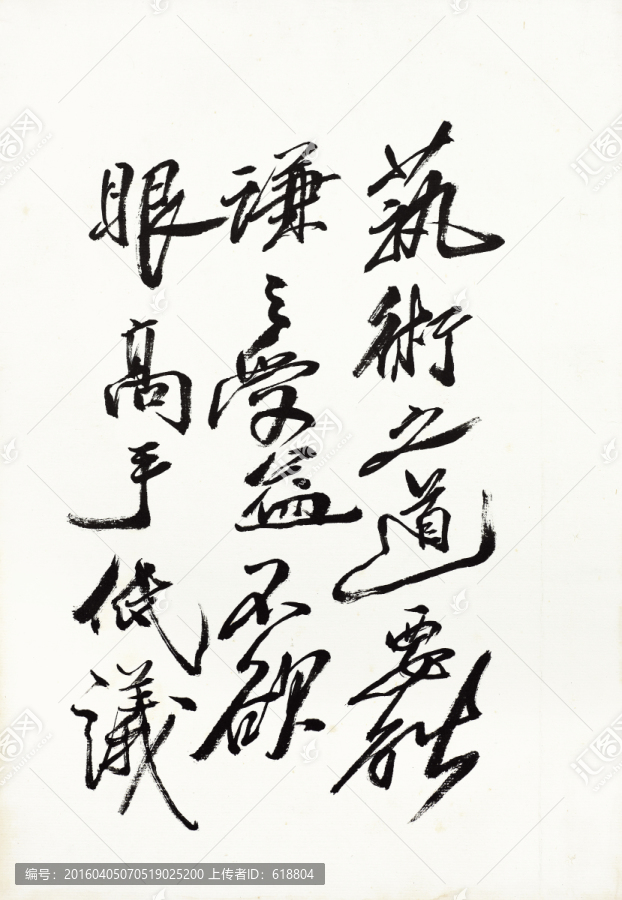 藝術之道要能
謙〻受益不欲
眼高手低議
编号：20160405070519025200 上传者ID：618804